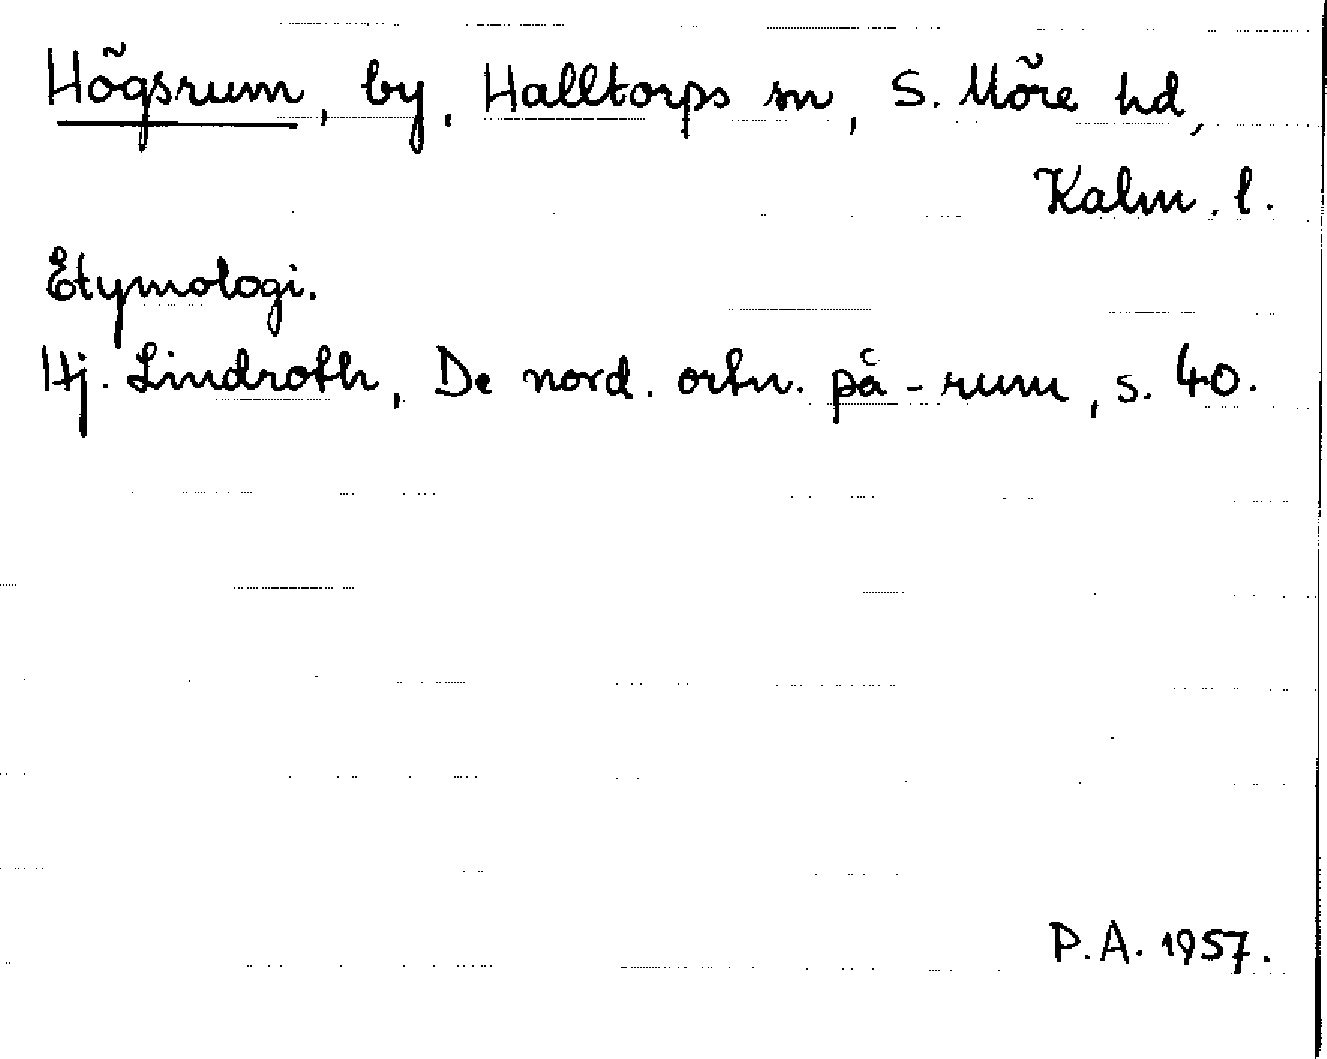 Högsrum, by, Halltorps sn, S. Möre hd,
Kalm. l.
Etymologi.
Hj. Lindroth, De nord. ortn. på -rum, s. 40.
P.A. 1957.